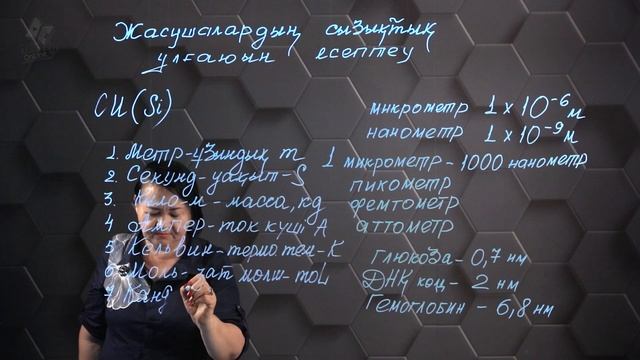 Жасушалардың сызықтық
ұлғаюын есептеу
СИ (Si)
1. Метр-ұзындық m
2. Секунд-уақыт-S
3. Кило-м-масса, кд
4. Ампер-ток күші А
5. Кельвин-термо.тем-К
6. Моль-зат молш-moL
7. Канд
микрометр 1 x 10⁻⁶ м
нанометр 1 x 10⁻⁹ м
1 микрометр-1000 нанометр
пикометр
фемтометр
аттометр
Глюкоза-0,7 нм
ДНҚ қ - 2 нм
Гемоглобин-6,8 нм